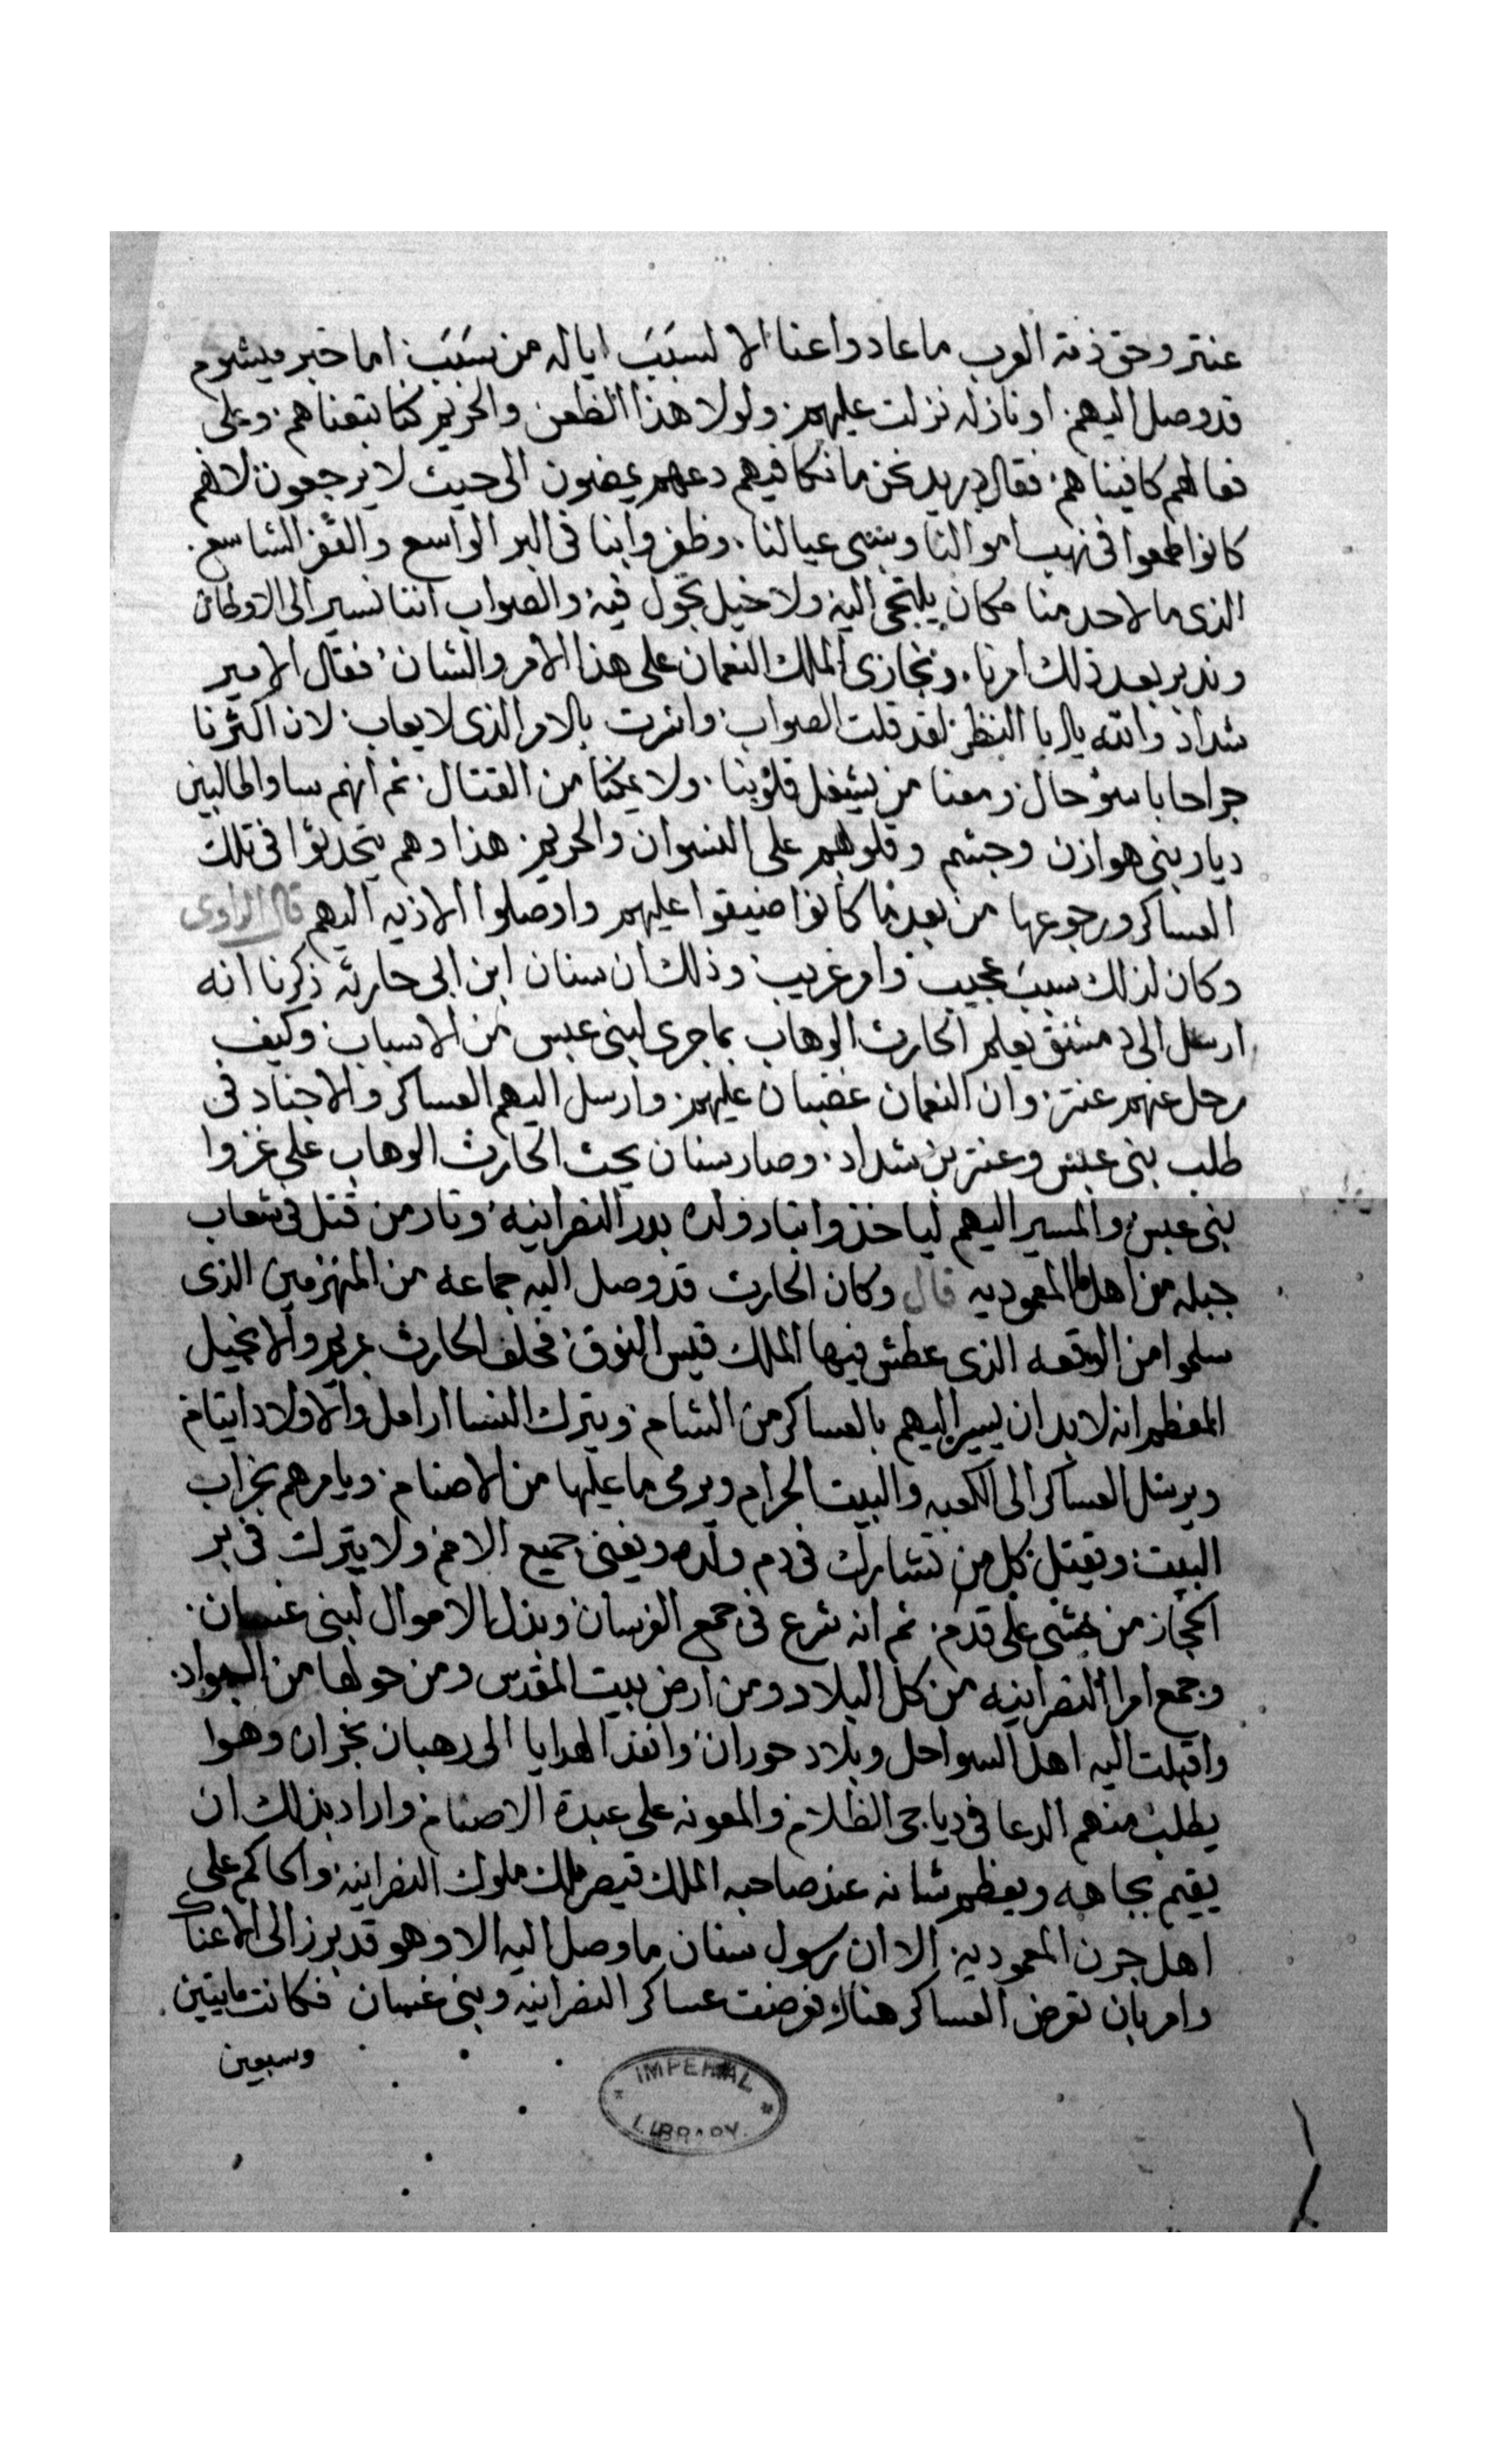 عنتر وحق ذمة العرب ما عادوا عنا الا لسبب اياله من سبب اما خبر ميشوم
قد وصل اليهم او نازله نزلت عليهم ولولا هذا الظعن والحريم كنا تبعناهم وعلى
فعالهم كافيناهم فقال دريد نحن ما نكافيهم دعهم يمضون الى حيث لا يرجعون لانهم
كانوا طمعوا فى نهب اموالنا وسبى عيالنا وظفروا بنا فى البر الواسع والقفر الشاسع
الذى ما لاحد منا مكان يلتجى اليه ولا خيل تجول فيه والصواب اننا نسير الى الاوطان
وندبر بعد ذلك امرنا ونجازى الملك النعمان على هذا الامر والشان فقال الامير
شداد والله يا ابا النظر لقد قلت الصواب واشرت بالامر الذى لا يعاب لان اكثرنا
جراحا باسؤ حال ومعنا من يشغل قلوبنا ولا يمكنا من القتال ثم انهم ساروا طالبين
ديار بنى هوازن وجشم وقلوبهم على النسوان والحريم هذا وهم يتحدثوا فى تلك
العساكر ورجوعها من بعد ما كانوا ضيقوا عليهم واوصلوا الاذيه اليهم قال الراوى
وكان لذلك سبب عجيب وامر غريب وذلك ان سنان ابن ابى حارثه ذكرنا انه
ارسل الى دمشق يعلم الحارث الوهاب بما جرى لبنى عبس من الاسباب وكيف
رحل عنهم عنتر وان النعمان غضبان عليهم وارسل اليهم العساكر والاجناد فى
طلب بنى عبس وعنتر بن شداد وصار سنان يحث الحارث الوهاب على غزوا
بنى عبس والمسير اليهم لياخذوا بثار ولده بدر النصرانيه وثار من قتل فى شعاب
جبله من اهل المعموديه قال وكان الحارث قد وصل اليه جماعه من المنهزمين الذى
سلموا من الوقعه الذى عطش فيها الملك قيس النوق فحلف الحارث بمريم والانجيل
المعظم انه لا بد ان يسير اليهم بالعساكر من الشام ويترك النسا ارامل والاولاد ايتام
ويرسل العساكر الى الكعبه والبيت الحرام ويرمى ما عليها من الاصنام ويامرهم بخراب
البيت ويقتل كل من تشارك فى دم ولده ويفنى جميع الامم ولا يترك فى بر
الحجاز من يمشى على قدم ثم انه شرع فى جمع الفرسان وبذل الاموال لبنى غسان
وجمع امرا النصرانيه من كل البلاد ومن ارض بيت المقدس ومن حولها من
واقبلت اليه اهل السواحل وبلاد حوران وانفذ الهدايا الى رهبان نجران وهوا
يطلب منهم الدعا فى دياجى الظلام والمعونه على عبدة الاصنام واراد بذلك ان
يقيم بجاهه ويعظم شانه عند صاحبه الملك قيصر ملك ملوك النصرانيه والحاكم على
اهل جرن المعموديه الا ان رسول سنان ما وصل اليه الا وهو قد برز الى
وامر بان تعرض العساكر هناك فعرضت عساكر النصرانيه وبنى غسان فكانت مايتين
وسبعين
IMPERIAL
LIBRARY.